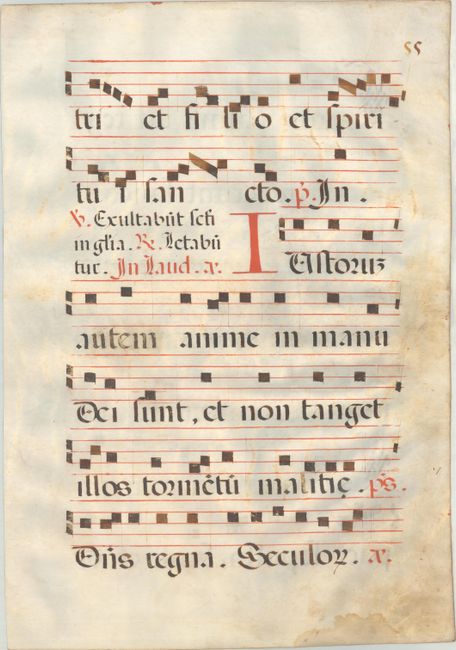 55
tri et fi li o et spiri
tu i san cto. p. In.
V. Exultabūt scti
in glia. R. Letabū
tur. In Laud. a. I
Ustoruz
autem anime in manu
Dei sunt, et non tanget
illos tormētū malitię. ps.
Dn̄s regna. Seculoꝝ. a.